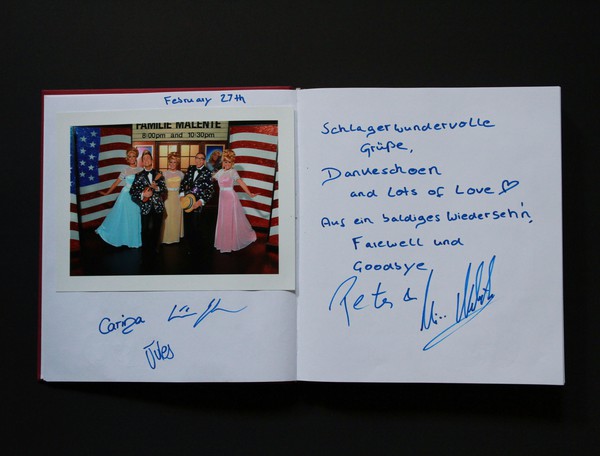 February 27th
FAMILIE MALENTE
8:00pm and 10:30pm
Carina
Jules
Schlagerwundervolle
Grüße,
Dankeschoen
and Lots of Love ♡
Auf ein baldiges Wiederseh'n,
Farewell und
Goodbye
Peter &